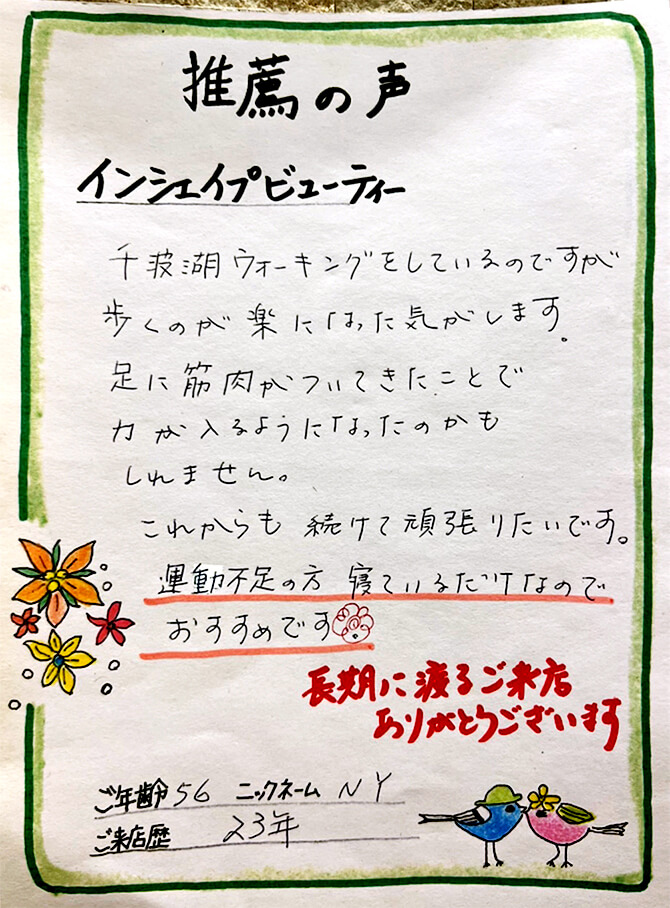 推薦の声
インシェイプビューティー
千波湖ウォーキングをしているのですが
歩くのが楽になった気がします。
足に筋肉がついてきたことで
力が入るようになったのかも
しれません。
これからも続けて頑張りたいです。
運動不足の方 寝ているだけなので
おすすめです
長期に渡るご来店
ありがとうございます
ご年齢 56 ニックネーム NY
ご来店歴 23年